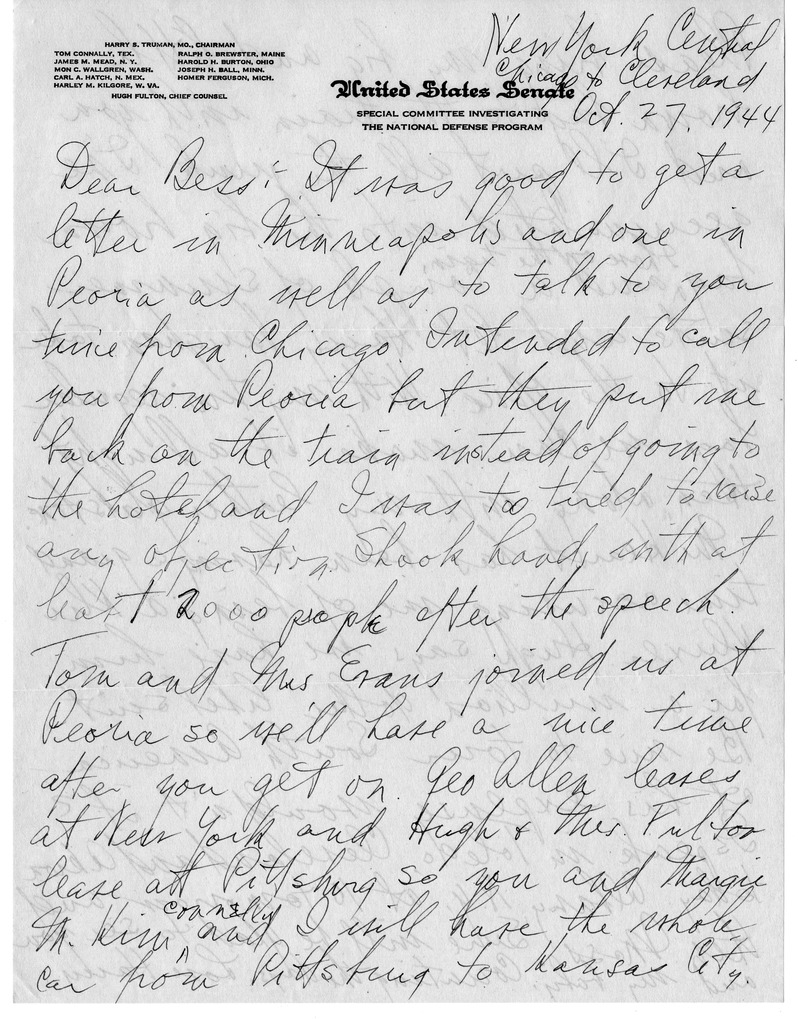 HARRY S. TRUMAN, MO., CHAIRMAN
TOM CONNALLY, TEX. RALPH O. BREWSTER, MAINE
JAMES M. MEAD, N. Y. HAROLD H. BURTON, OHIO
MON C. WALLGREN, WASH. JOSEPH H. BALL, MINN.
CARL A. HATCH, N. MEX. HOMER FERGUSON, MICH.
HARLEY M. KILGORE, W. VA.
HUGH FULTON, CHIEF COUNSEL
United States Senate
SPECIAL COMMITTEE INVESTIGATING
THE NATIONAL DEFENSE PROGRAM
New York Central
Chicago to Cleveland
Oct. 27, 1944
Dear Bess:- It was good to get a
letter in Minneapolis and one in
Peoria as well as to talk to you
time from Chicago. Intended to call
you from Peoria but they put me
back on the train instead of going to
the hotel and I was too tired to raise
any objection. Shook hands with at
least 2000 people after the speech.
Tom and Mrs Evans joined us at
Peoria so we'll have a nice time
after you get on. Geo Allen leaves
at New York and Hugh & Mrs. Fulton
leave at Pittsburg so you and Margie
M. Kim Connelly and I will have the whole
car from Pittsburg to Kansas City.